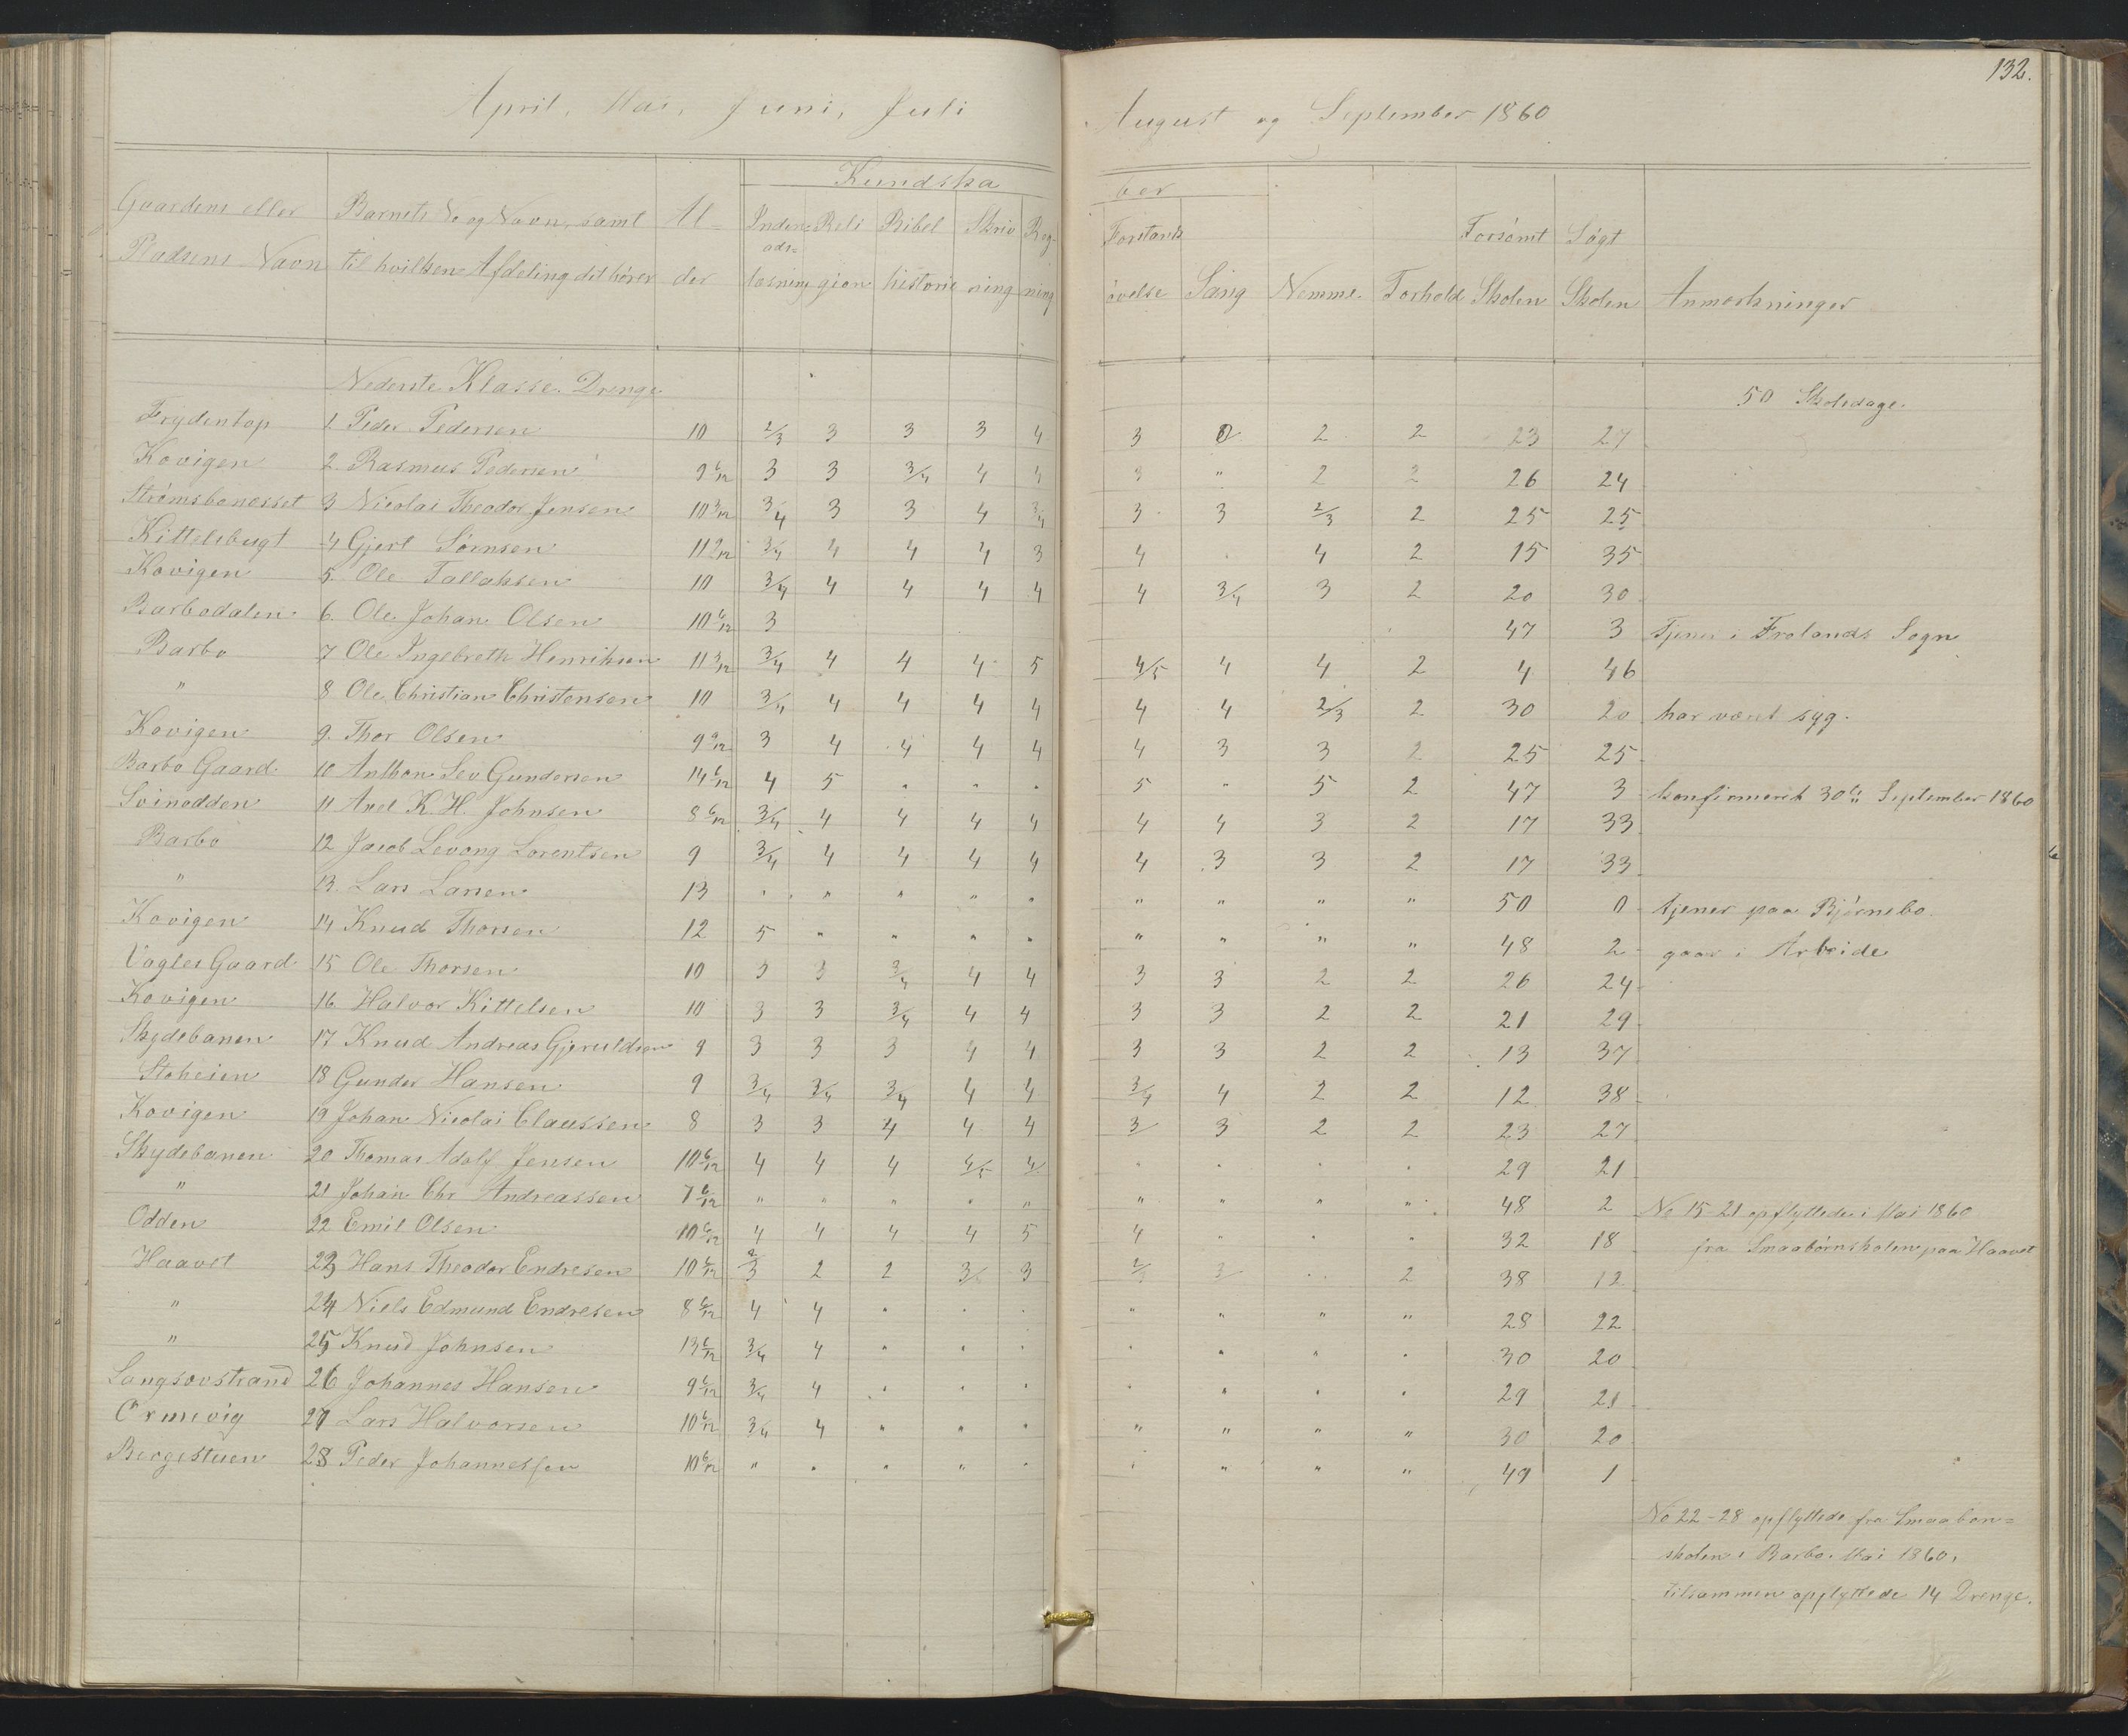 132.
April, Mai, Juni, Juli August og September 1860
Kundska ber
Gaardens eller Barnets No og Navn, samt Al- Inden- Reli Bibel Skriv Reg- Forstands Forsømt Søgt
Pladsens Navn til hvilken Afdeling det hører der læsning gion historie ning ning øvelse Sang Nemme. Forhold Skolen Skolen Anmerkninger
Nederste Klasse. Drenge
50 Skoledage.
Frydentop 1. Peder Pedersen 10 2/3 3 3 3 4 3 0 2 2 23 27
Kovigen 2. Rasmus Pedersen 9 6/12 3 3 3/4 4 4 3 " 2 2 26 24
Strømsbonesset 3 Nicolai Theodor Jensen 10 3/12 3/4 3 3 4 3/4 3 3 2/3 2 25 25
Kittelsbugt 4 Gjert Sørnsen 11 2/12 3/4 4 4 4 3 4 . 4 2 15 35
Kovigen 5. Ole Tallaksen 10 3/4 4 4 4 4 4 3/4 3 2 20 30
Barbodalen 6. Ole Johan Olsen 10 6/12 3 47 3 Tjener i Frolands Sogn
Barbo 7 Ole Ingebreth Henriksen 11 3/12 3/4 4 4 4 5 4/5 4 4 2 4 46
" 8 Ole Christian Christensen 10 3/4 4 4 4 4 4 4 2/3 2 30 20 har været syg.
Kovigen 9. Thor Olsen 9 9/12 3 4 4 4 4 4 3 3 2 25 25
Barbo Gaard. 10 Anthon Sev Gundersen 14 6/12 4 5 . . . 5 " 5 2 47 3 konfirmeret 30te September 1860
Svinodden 11 Axel K. H. Johnsen 8 6/12 3/4 4 4 4 4 4 4 3 2 17 33
Barbo 12 Jacob Levong Lorentsen 9 3/4 4 4 4 4 4 3 3 2 17 33
" 13. Lars Larsen 13 " " " " " " " " " 50 0 tjener paa Bjørnebo.
Kovigen 14 Knud Thorsen 12 5 " " " " " " " " 48 2 gaar i Arbeide
Vagles Gaard 15 Ole Thorsen 10 3 3 3/4 4 4 3 3 2 2 26 24
Kovigen 16 Halvor Kittelsen 10 3 3 3/4 4 4 3 3 2 2 21 29
Skydebanen 17 Knud Andreas Gjeruldsen 9 3 3 3 4 4 3 3 2 2 13 37
Stoheien 18 Gunder Hansen 9 3/4 3/4 3/4 4 4 3/4 4 2 2 12 38
Kovigen 19 Johan Nicolai Claussen 8 3 3 4 4 4 3/ 3 2 2 23 27
Skydebanen 20 Thomas Adolf Jensen 10 6/12 4 4 4 4/5 4/ " " " " 29 21
" 21 Johan Chr Andreassen 7 6/12 " " " " " " " " " 48 2 No 15-21 opflyttede i Mai 1860
Odden 22 Emil Olsen 10 6/12 4 4 4 4 5 4 " " " 32 18 fra Smaabørnskolen paa Haavet
Haavet 23 Hans Theodor Endresen 10 6/12 2/3 2 2 3/ 3 2/3 3/ " 2 38 12
" 24 Niels Edmund Endresen 8 6/12 4 4 " " " " " " " 28 22
" 25 Knud Johnsen 13 6/12 3/4 4 " " " " " " " 30 20
Langsovstrand 26 Johannes Hansen 9 6/12 3/4 4 " " " " " " " 29 21
Ormevig 27 Lars Halvorsen 10 6/12 3/4 4 " " " " " " " 30 20
Bergestuen 28 Peder Johannessen 10 6/12 " " " " " " " " " 49 1
No 22-28 opflyttede fra Smaabon=
skolen i Barbo. Mai 1860.
tilsammen opflyttede 14 Drenge.